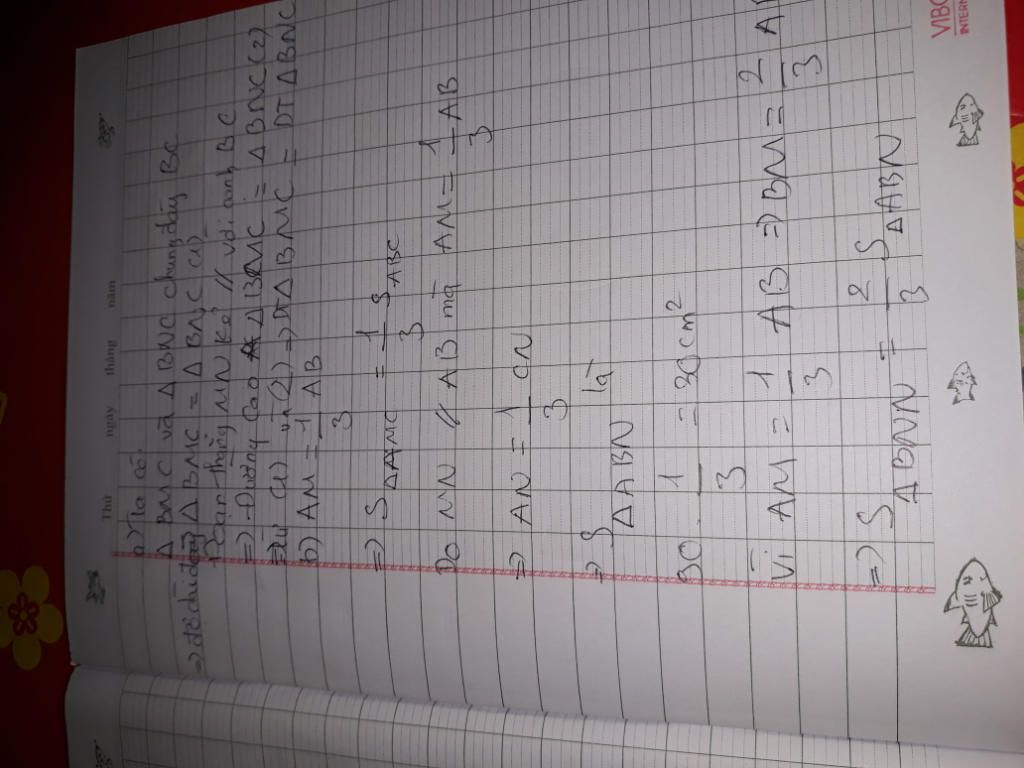 Thứ ngày tháng năm
a) Ta có:
Δ BMC và Δ BNC chung đáy BC
=> độ dài đáy Δ BMC = Δ BNC (1)
Đoạn thẳng MN kẻ // với cạnh BC
=> Đường cao Δ BMC = Δ BNC (2)
Từ (1) và (2) => DT Δ BMC = DT Δ BNC
b) AM = 1/3 AB
=> S ΔAMC = 1/3 S ABC
Do MN // AB mà AM = 1/3 AB
=> AN = 1/3 CN
=> S ΔABN là
90 . 1/3 = 30 cm²
Vì AM = 1/3 AB => BM = 2/3 A
=> S ΔBNN = 2/3 S ΔABN
VIBO
INTERN